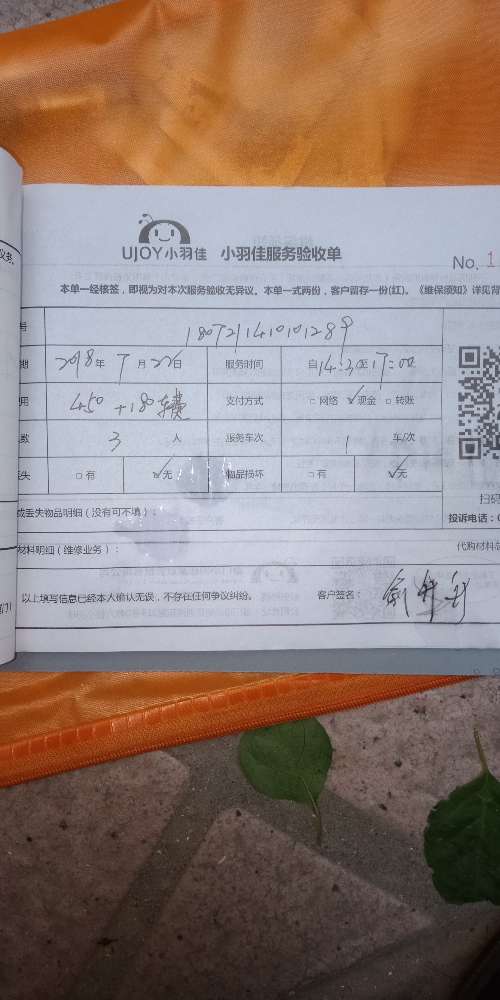 UJOY小羽佳 小羽佳服务验收单
No. 1
本单一经核签，即视为对本次服务验收无异议。本单一式两份，客户留存一份(红)。《维保须知》详见背
号 180721410101289
期 2018年 7月22日 服务时间 自14:30至17:00
用 450+180车费 支付方式 □网络 ☑现金 □转账
数 3 人 服务车次 1 车/次
失 □有 ☑无 物品损坏 □有 ☑无
或丢失物品明细（没有可不填）：
扫码
投诉电话：0
材料明细（维修业务）： 代购材料总
以上填写信息已经本人确认无误，不存在任何争议纠纷。 客户签名：